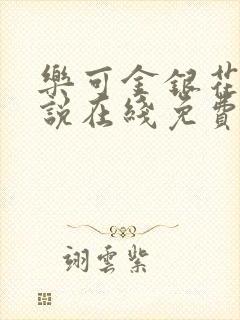 樂可金銀花
說在綫免費
翊雲紫